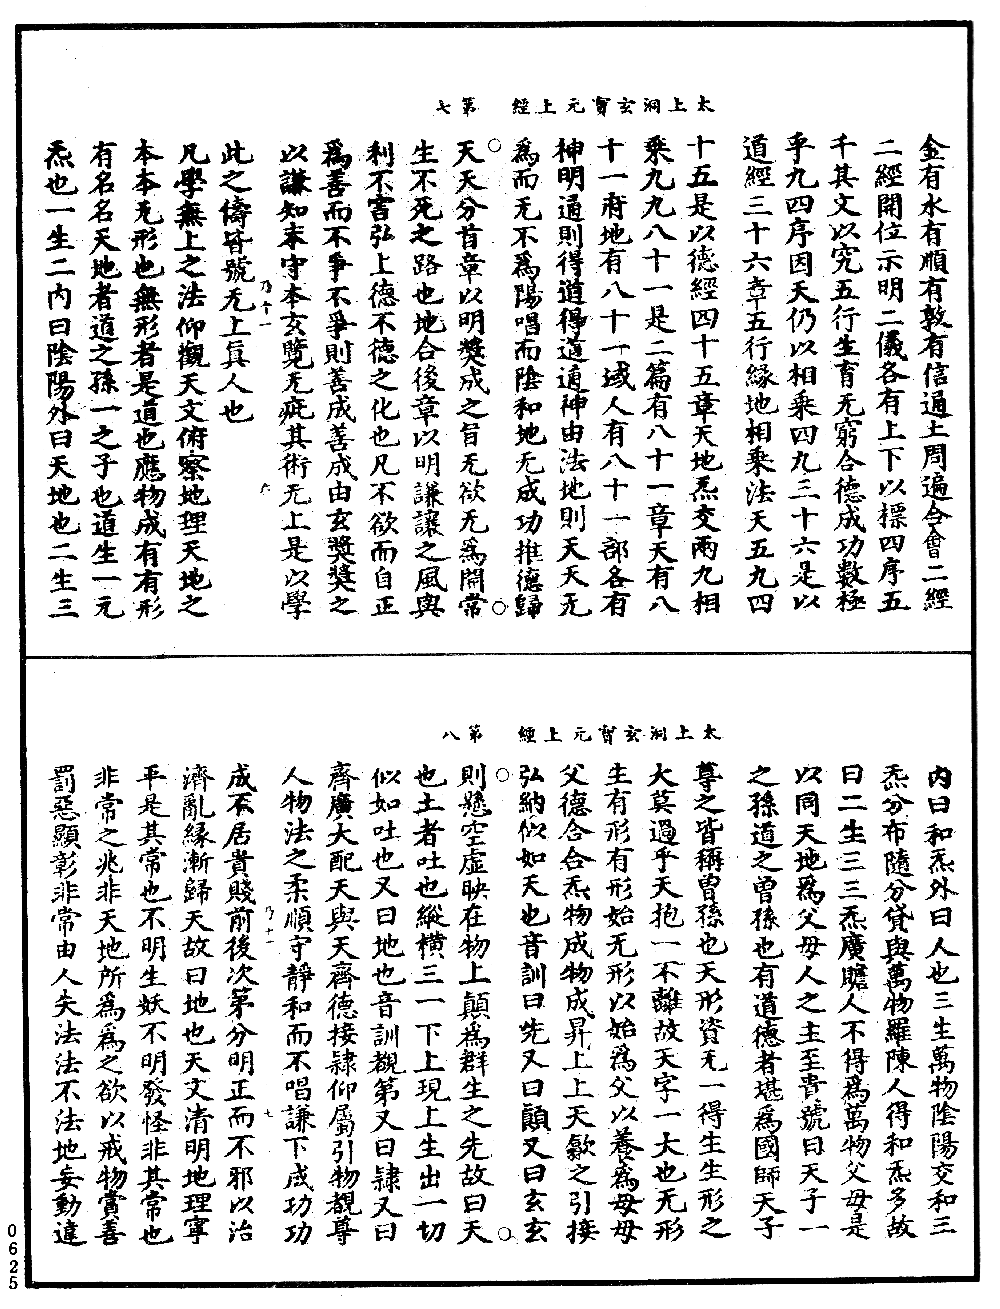 太上洞玄寶元上經　第七
金有水有順有敦有信通土問遍合會二經
二經開位示明二儀各有上下以標四序五
千其文以究五行生育无窮合德成功數極
乎九四序因天仍以相乘四九三十六是以
道經三十六章五行緣地相乘法天五九四
十五是以德經四十五章天地炁交兩九相
乘九九八十一是二篇有八十一章天有八
十一府地有八十一域人有八十一部各有
神明通則得道得道通神由法地則天天无
爲而无不爲陽唱而陰和地无成功推德歸
天天分首章以明獎成之旨无欲无爲開常
生不死之路也地合後章以明謙讓之風與
利不害弘上德不德之化也凡不欲而自正
爲善而不爭不爭則善成善成由玄獎獎之
以謙知本守本玄覽无疵其術无上是以學
此之儔皆號无上眞人也
凡學無上之法仰觀天文俯察地理天地之
本本无形也無形者是道也應物成有有形
有名名天地者道之孫一之子也道生一元
炁也一生二内曰陰陽外曰天地也二生三
乃十一
六
太上洞玄寶元上經　第八
内曰和炁外曰人也三生萬物陰陽交和三
炁分布隨分貸與萬物羅陳人得和炁多故
曰二生三三炁廣贍人不得爲萬物父母是
以同天地爲父母人之主至貴號曰天子一
之孫道之曾孫也有道德者堪爲國師天子
尊之皆稱曾孫也天形資无一得生生形之
大莫過乎天抱一不離故天字一大也无形
生有形有形始无形以始爲父以養爲母母
父德合合炁物成物成昇上上天歙之引接
弘納似如天也音訓曰先又曰顚又曰玄玄
則懸空虛映在物上顚爲群生之先故曰天
也土者吐也縱橫三一下上現上生出一切
似如吐也又曰地也音訓覩第又曰隷又曰
齊廣大配天與天齊德接隷仰屬引物覩尊
人物法之柔順守靜和而不唱謙下成功功
成不居貴賤前後次第分明正而不邪以治
濟亂緣漸歸天故曰地也天文清明地理寧
平是其常也不明生妖不明發怪非其常也
非常之兆非天地所爲爲之欲以戒物賞善
罰惡顯彰非常由人失法法不法地妄動違
乃十一
七
0625